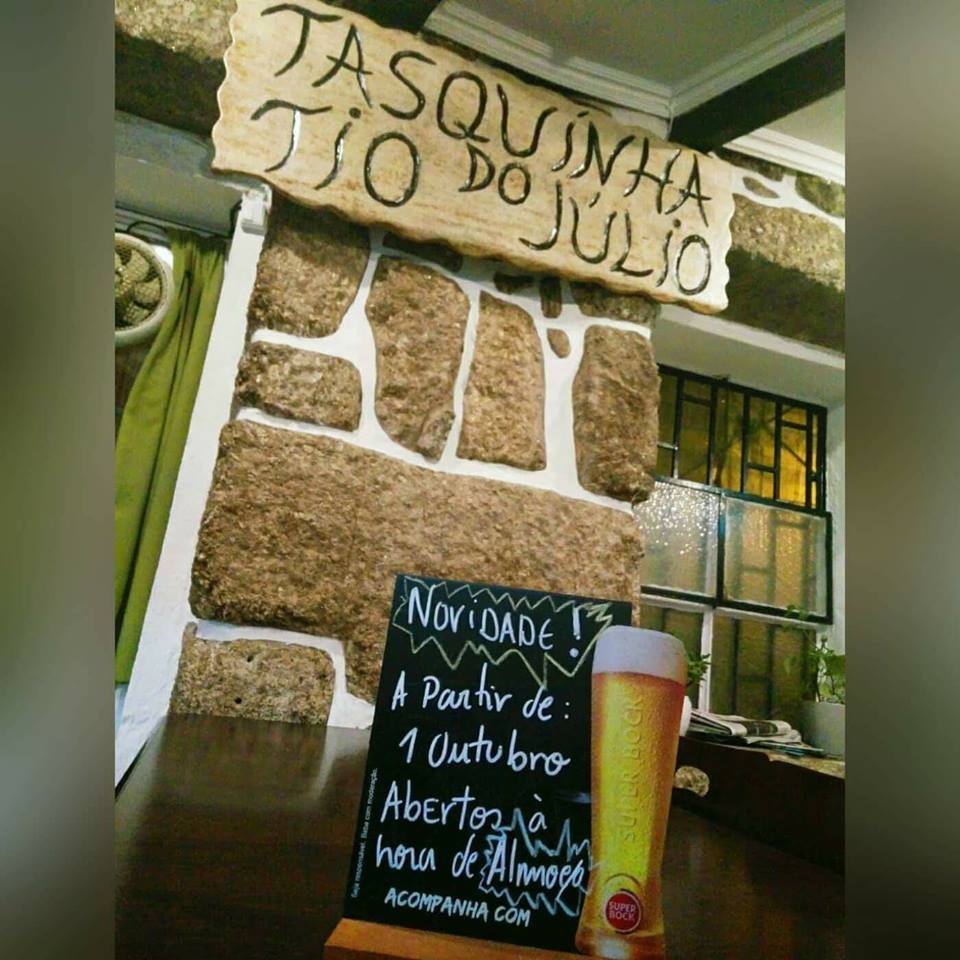 TASQUINHA
TIO DO JÚLIO
NOVIDADE!
A Partir de:
1 Outubro
AbErtos à
hora de Almoço
ACOMPANHA COM
Seja responsável. Beba com moderação.
SUPER BOCK
SUPER
BOCK